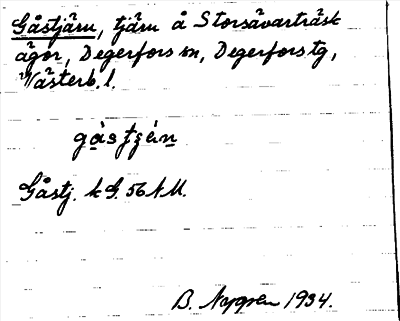 Gåstjärn, tjärn å Storsävarträsk
ägor, Degerfors sn, Degerfors tg,
Västerb. l.
gåstjärn
Gåstj. k G. 56 NM.
B. Nygren 1934.